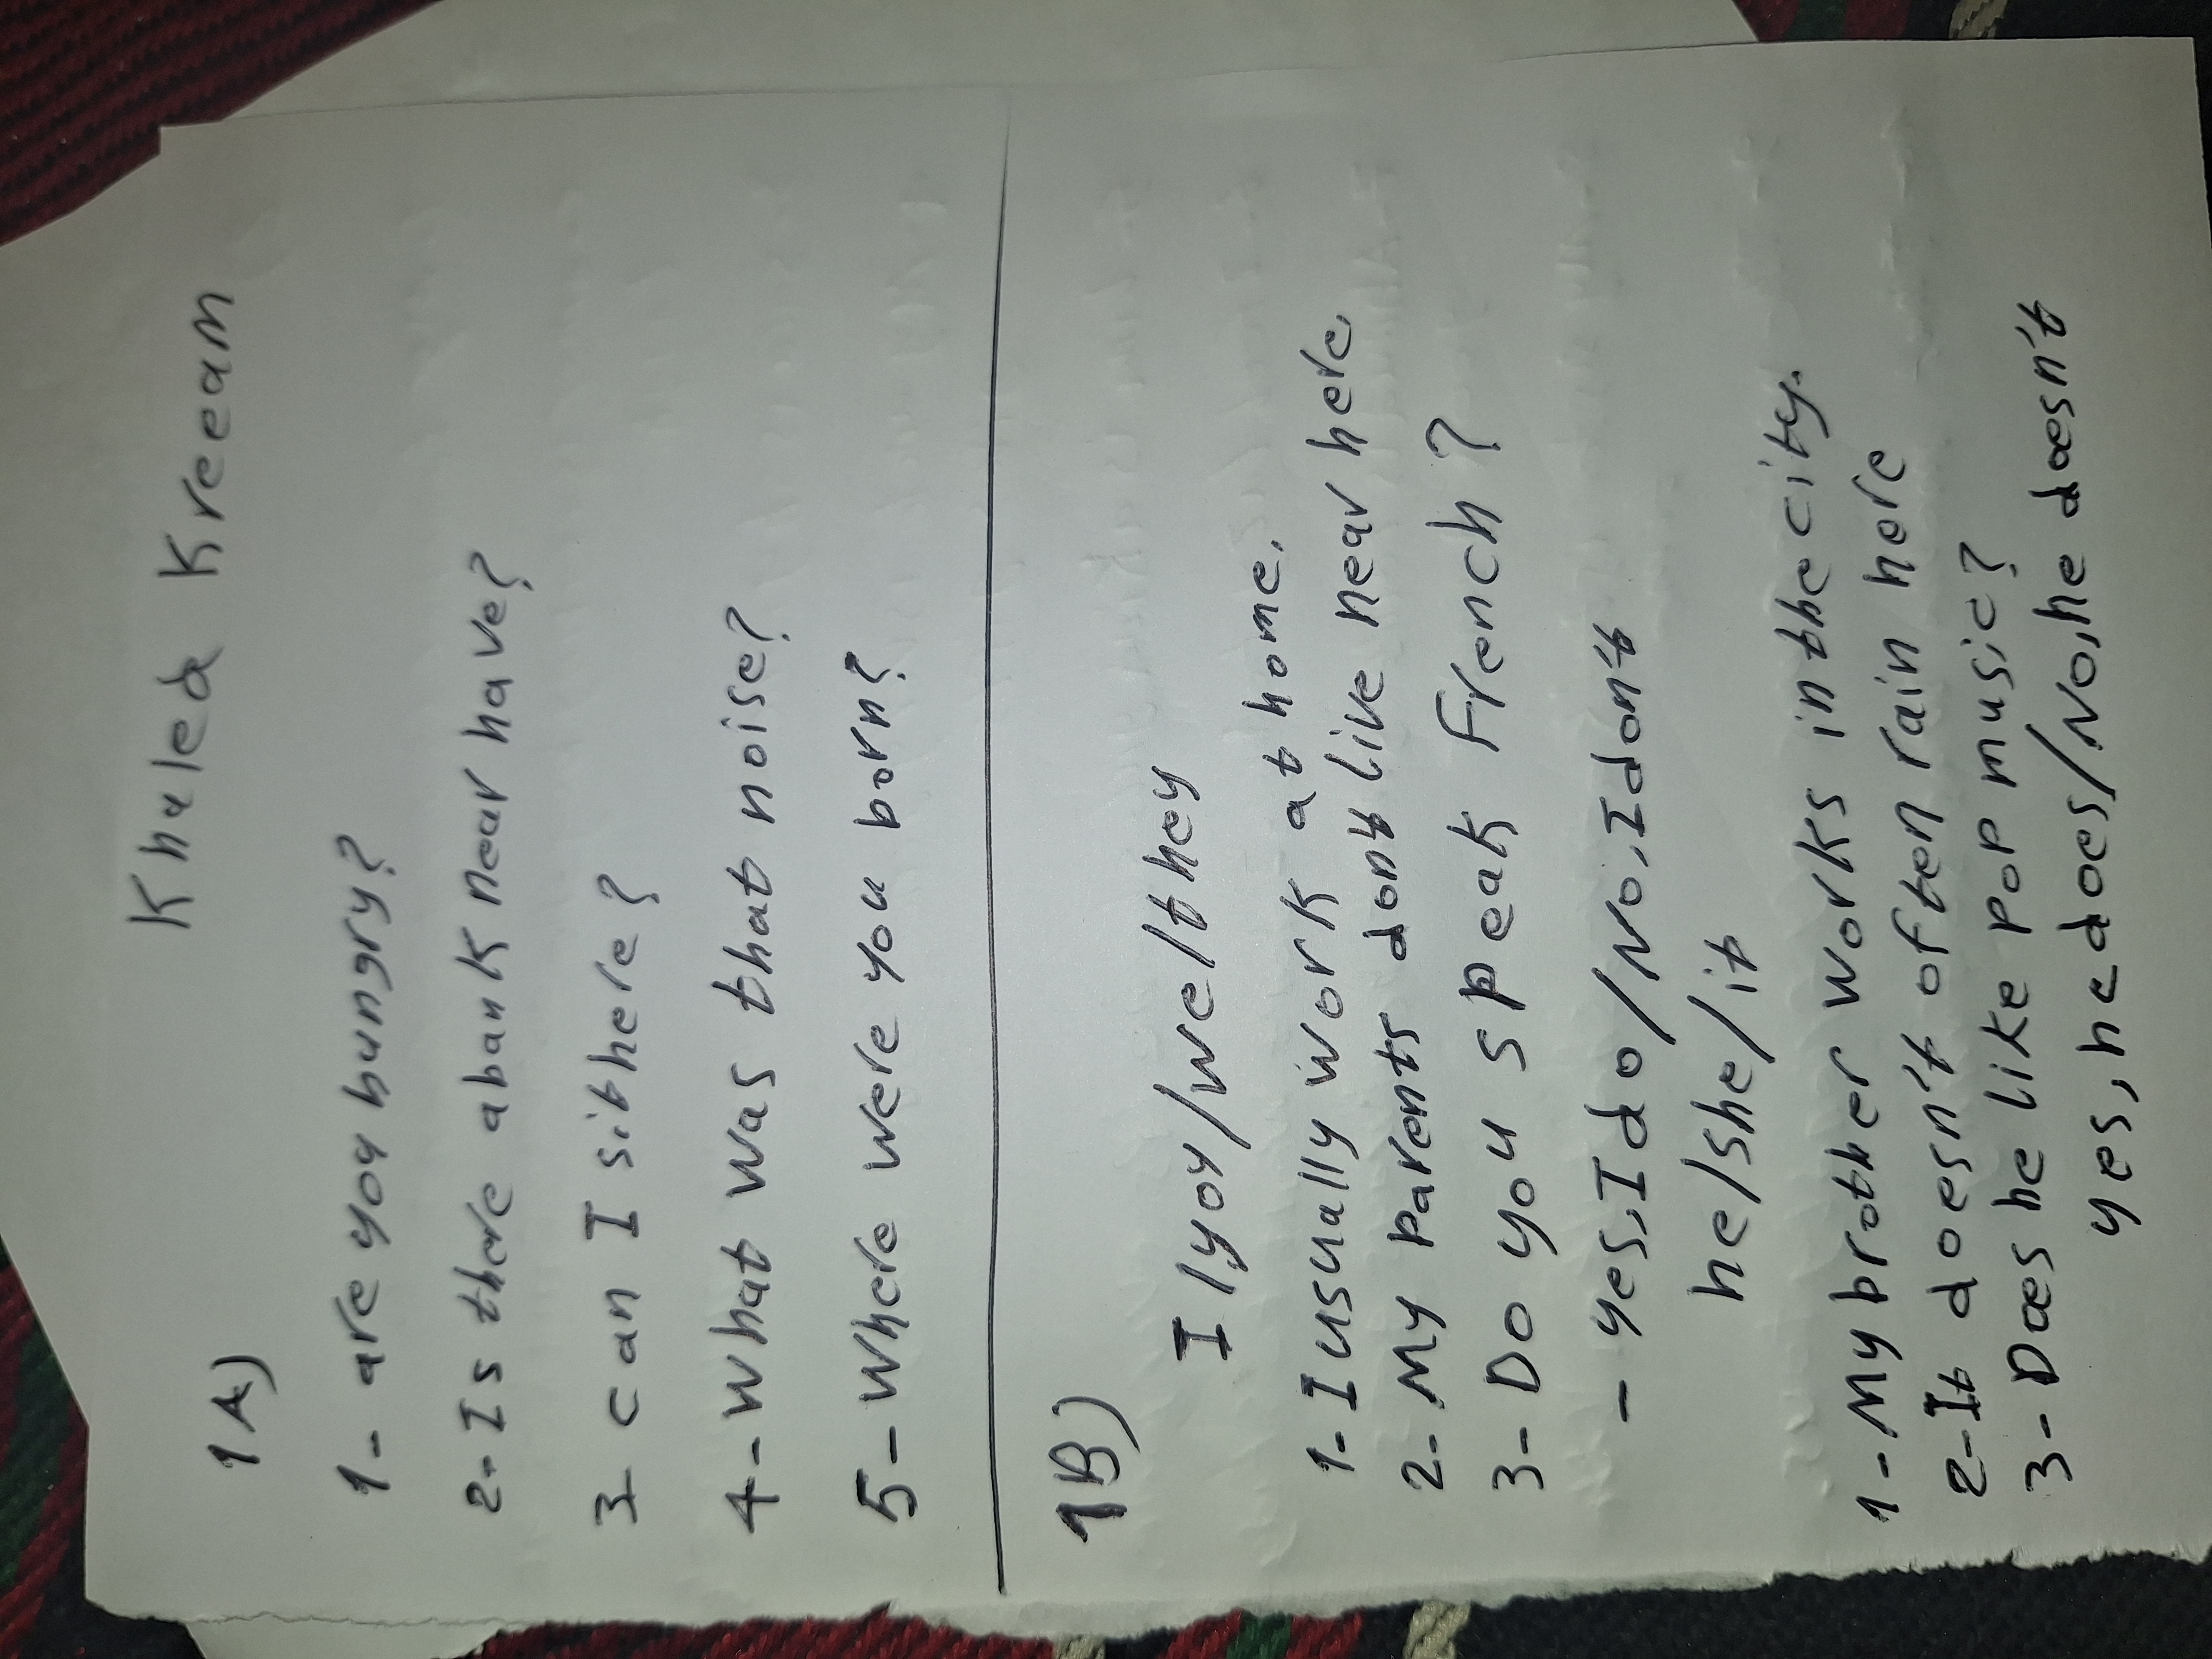 Khaled Kreeam
1A)
1- are you hungry?
2- Is there a bank near have?
3- can I sit here?
4- What was that noise?
5- Where were you born?
1B)
I/you/we/they
1- I usually work at home.
2- My parents don't live near here.
3- Do you speak French?
- yes, I do/No, I don't
he/she/it
1- My brother works in the city.
2- It doesn't often rain here
3- Does he like pop music?
yes, he does/No, he doesn't